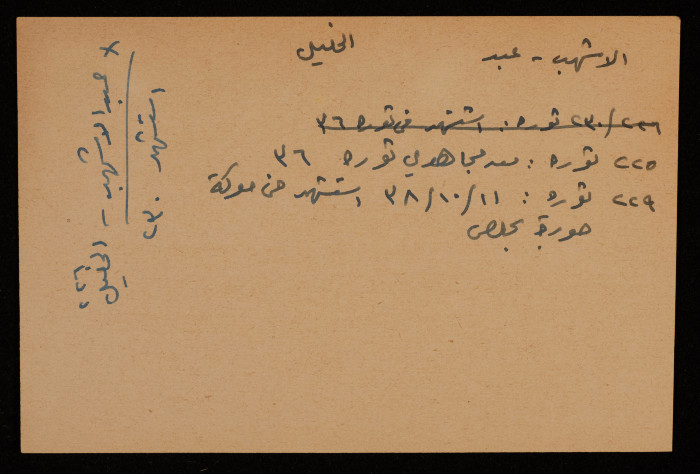 الاشهب - عبد
الخليل
٢٣٠/٢٢٦ ثورة : استشهد في ثورة ٣٦
٢٢٥ ثورة : من مجاهدي ثورة ٣٦
٢٢٩ ثورة : ٣٨/١٠/١١ استشهد في معركة
حورة بجلص
x عبد الاشهب - الخليل
٢٢٦
استشهد ٢٣٠